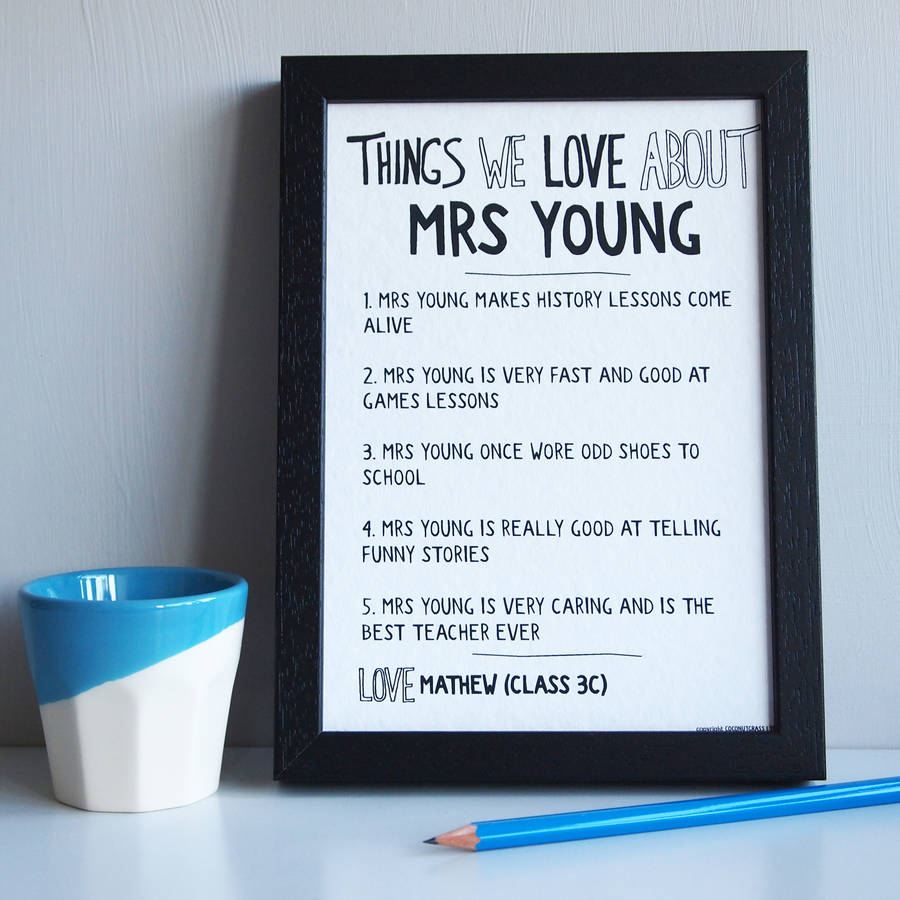 THINGS WE LOVE ABOUT
MRS YOUNG
1. MRS YOUNG MAKES HISTORY LESSONS COME
ALIVE
2. MRS YOUNG IS VERY FAST AND GOOD AT
GAMES LESSONS
3. MRS YOUNG ONCE WORE ODD SHOES TO
SCHOOL
4. MRS YOUNG IS REALLY GOOD AT TELLING
FUNNY STORIES
5. MRS YOUNG IS VERY CARING AND IS THE
BEST TEACHER EVER
LOVE MATHEW (CLASS 3C)
copyright COCONUTGRASS